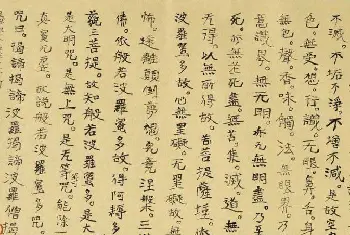 不滅。不垢不淨不增不減。是故空
色。無受想。行識。無眼。鼻。舌。身
無色。聲香味觸。法。無眼界。乃
意識界。無無明。亦无無明盡。乃至
死。亦無老死盡。無苦。集。滅。道。無
无得。以無所得故。菩提薩埵。依
波羅蜜多故。心無罣礙。无罣礙故。無
怖。遠離顛倒夢想。究竟涅槃。三
佛。依般若波羅蜜多故。得阿耨多
藐三菩提。故知般若波羅蜜多。是大
是大明咒。是無上咒。是无等咒。能除
真實不虛。故說般若波羅蜜多咒。
咒曰。揭諦揭諦波羅揭諦波羅僧揭